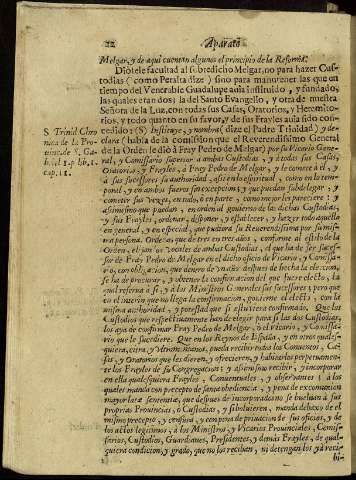 22 Aparato
Melgar, y de aqui cuentan algunos el principio de la Reforma.
Diòtele facultad al sobredicho Melgar, no para hazer Cus-
todias (como Peralta dize) sino para mantener las que en
tiempo del Venerable Guadalupe avia instituido, y fundado,
las quales eran dos: la del Santo Evangelio, y otra de nuestra
Señora de la Luz, con todas sus Casas, Oratorios, y Heremito-
rios, y todo quanto en su favor, y de sus Frayles avia sido con-
S. Trinid. Chro
nica de la Pro-
vinc. de S. Ga-
briel l. 1. fol. 1.
cap. 11.
cedido: (S) Instituye, y nombra (dize el Padre Trinidad) y de-
clara (habla de la Comission que el Reverendissimo General
de la Orden le diò à Fray Pedro de Melgar) por su Vicario Gene-
ral, y Comissario superior à ambas Custodias, y à todas sus Casas,
Oratorios, y Frayles, à Fray Pedro de Melgar, y le comete à èl, y
à sus sucessores su authoridad, assi en lo espiritual, como en lo tem-
poral, y en ambos fueros sin excepcion; y que puedan subdelegar, y
cometer sus vezes, en todo, ò en parte, como mejor les pareciere: y
assimismo que puedan, en orden al govierno de las dichas Custodias,
y sus Frayles, ordenar, disponer, y establecer, y hazer todo aquello
en general, y en especial, que pudiera su Reverendissima por su mis-
ma persona. Ordena que de tres en tres años, conforme al estilo de la
Orden, elijan los Vocales de ambas Custodias, el que ha de ser suces-
sor de Fray Pedro de Melgar en el dicho oficio de Vicario, y Comissa-
rio, con obligacion, que dentro de un mes despues de hecha la eleccion,
se ha de procurar, y obtener la confirmacion del que fuere electo, la
qual reserva à sì, y à los Ministros Generales sus sucessores; pero que
en el interin que no llega la confirmacion, govierne el electo, con la
misma authoridad, y potestad que si estuviera confirmado. Que los
Custodios que respectivamente han de elegir para si las dos Custodias,
los aya de confirmar Fray Pedro de Melgar, ò el Vicario, y Comissa-
rio que le sucediere. Que en los Reynos de España, y en otros quales-
quiera, citra, y ultramarinos, pueda recibir todos los Conventos, Ca-
sas, y Oratorios que les dieren, y ofrecieren, y habitarlos perpetuamen-
te los Frayles de su Congregacion: y assimismo recibir, y incorporar
en ella qualesquiera Frayles, Conventuales, y Observantes: à los
quales manda con precepto de santa obediencia, y pena de excomunion
mayor lata sententia, que despues de incorporados no se buelvan à sus
proprias Provincias, ò Custodias, y si bolvieren, manda debaxo de el
mismo precepto, y censura, y con pena de privacion de sus oficios, y de
los actos legitimos, à los Ministros, y Vicarios Provinciales, Comis-
sarios, Custodios, Guardianes, Presidentes, y demàs Frayles, de qual-
quiera condicion, y grado, que no los reciban, ni detengan los yà reci-
bi-